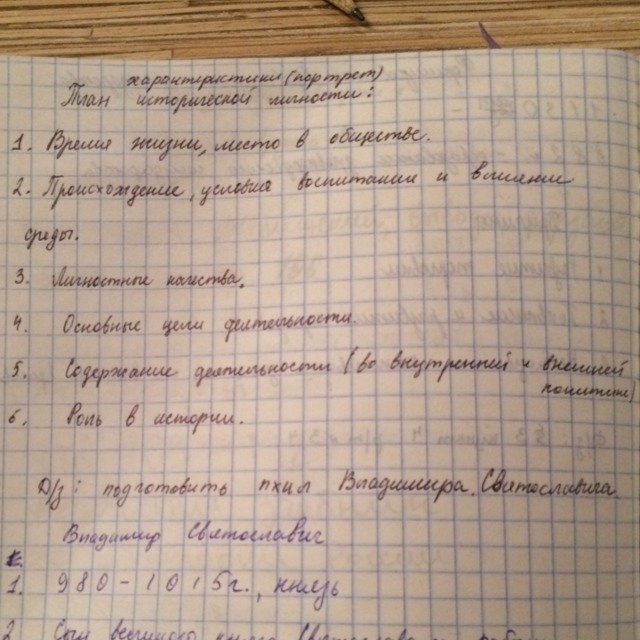 характеристики (портрет)
План исторической личности:
1. Время жизни, место в обществе.
2. Происхождение, условия воспитания и влияние
среды.
3. Личностные качества.
4. Основные цели деятельности
5. Содержание деятельности (во внутренней и внешней
политике)
6. Роль в истории.
Д/з: подготовить пхил Владимира Святославича.
Владимир Святославич
1. 980-1015г., князь
2. Сын великого князя Святослава и